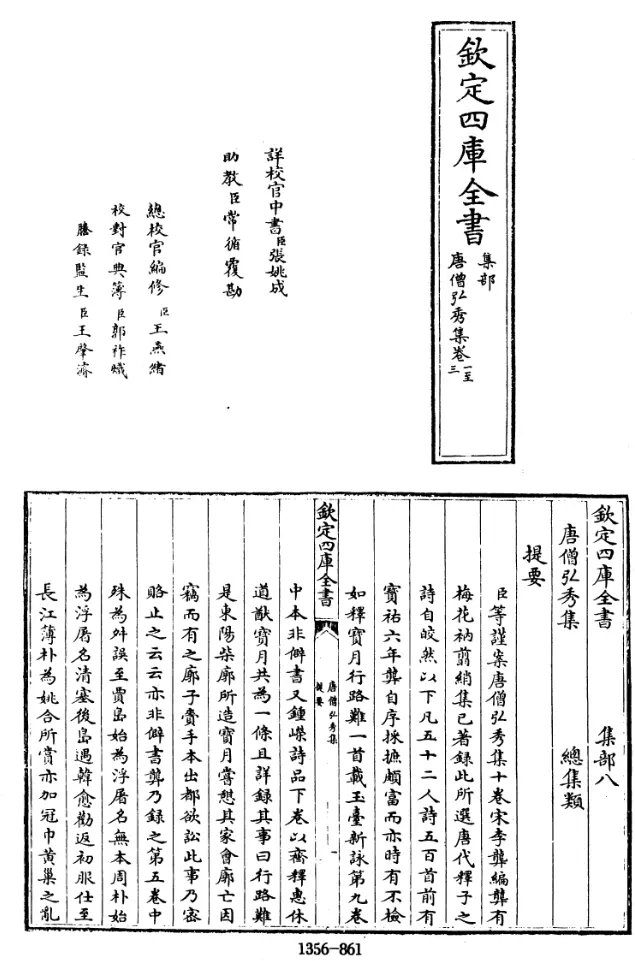 欽定四庫全書
集部
唐僧弘秀集卷一至三
詳校官中書臣張姚成
助教臣常循覆勘
總校官編修臣王燕緒
校對官典簿臣郭祚熾
謄錄監生臣王肇濟
欽定四庫全書 集部八
唐僧弘秀集 總集類
提要
臣等謹案唐僧弘秀集十卷宋李龏編龏有
梅花衲翦綃集已著録此所選唐代釋子之
詩自皎然以下凡五十二人詩五百首前有
寶祐六年龏自序採摭頗富而亦時有不檢
如釋寶月行路難一首載玉臺新詠第九卷
欽定四庫全書
唐僧弘秀集
提要
一
中本非僻書又鍾嶸詩品下卷以齊釋惠休
道猷寶月共為一條且詳録其事曰行路難
是東陽柴廓所造寶月嘗憩其家會廓亡因
竊而有之廓子賫手本出都欲訟此事乃宻
賂止之云云亦非僻書龏乃録之第五卷中
殊為舛誤至賈島始為浮屠名無本周朴始
為浮屠名清塞後島遇韓愈勸返初服仕至
長江薄朴為姚合所賞亦加冠巾黃巢之亂
1356-861